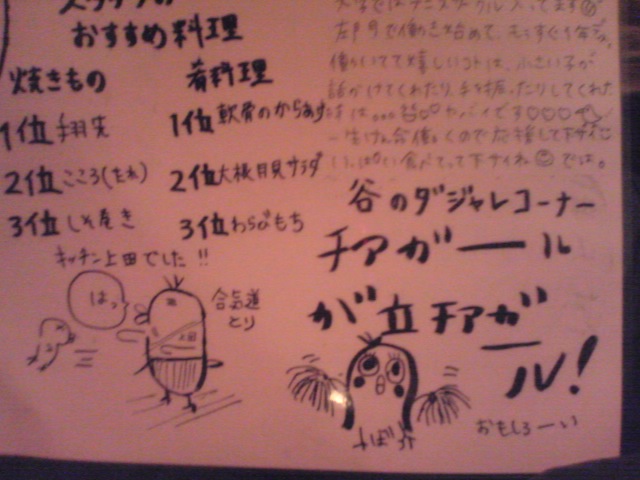 スタッフの
おすすめ料理
焼きもの
肴料理
1位 手羽先
1位 軟骨のからあげ
2位 こころ(たれ)
2位 大根月見サラダ
3位 しそ巻き
3位 わらびもち
キッチン上田でした!!
はっ
合気道
とり
上田
大学ではテニスサークル入ってます
で働き始めて、もうすぐ1年
働いてて嬉しいコトは、小さい子が
話かけてくれたり、手を振ったりしてくれた
ヤバイです♡♡♡
一生けん命働くので応援して下サイ
いっぱい食べてって下サイね では。
谷のダジャレコーナー
チアガール
が立チアガ
ール!
おもしろーい